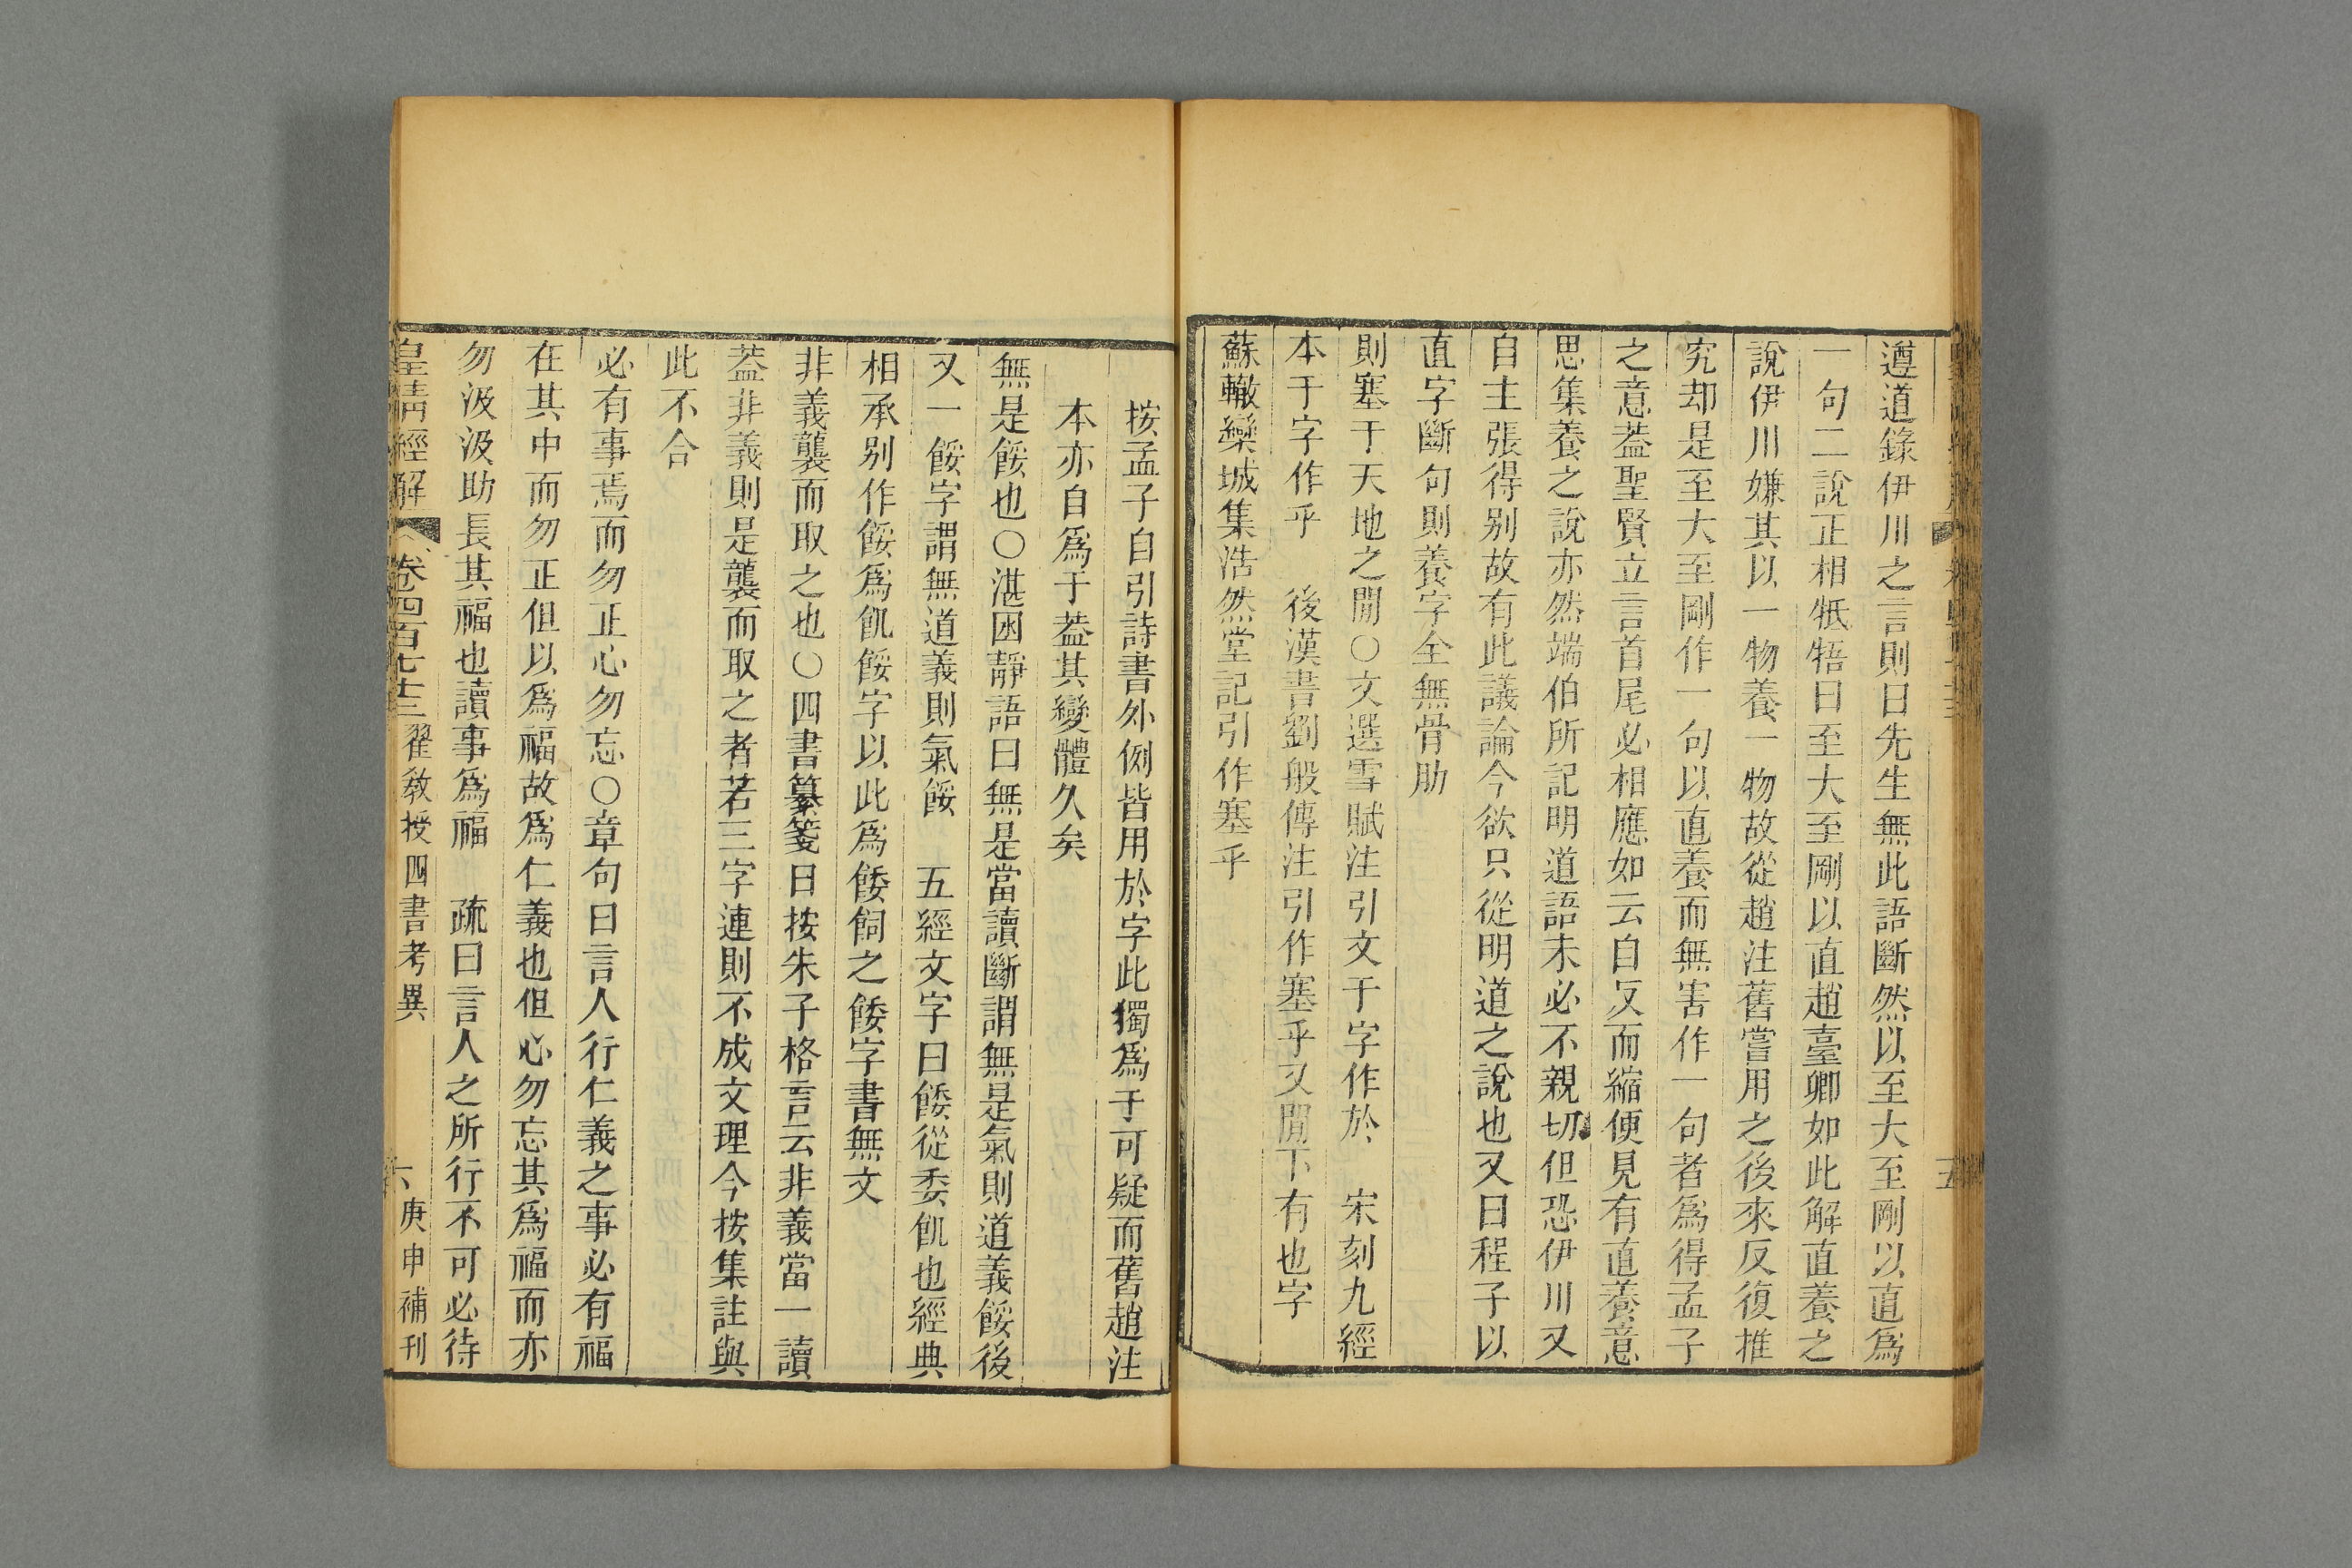 遵道錄伊川之言則曰先生無此語斷然以至大至剛以直爲
一句二說正相牴牾曰至大至剛以直趙臺卿如此解直養之
說伊川嫌其以一物養一物故從趙注舊嘗用之後來反復推
究却是至大至剛作一句以直養而無害作一句者爲得孟子
之意葢聖賢立言首尾必相應如云自反而縮便見有直養意
思集養之說亦然端伯所記明道語未必不親切但恐伊川又
自主張得別故有此議論今欲只從明道之說也又曰程子以
直字斷句則養字全無骨肋
則塞于天地之閒○文選雪賦注引文于字作於　宋刻九經
本于字作乎　後漢書劉般傳注引作塞乎又閒下有也字
蘇轍欒城集浩然堂記引作塞乎
按孟子自引詩書外例皆用於字此獨爲于可疑而舊趙注
本亦自爲于葢其變體久矣
無是餒也○湛困靜語曰無是當讀斷謂無是氣則道義餒後
又一餒字謂無道義則氣餒　五經文字曰餧從委飢也經典
相承別作餒爲飢餒字以此爲餧飼之餧字書無文
非義襲而取之也○四書纂箋曰按朱子格言云非義當一讀
葢非義則是襲而取之者若三字連則不成文理今按集註與
此不合
必有事焉而勿正心勿忘○章句曰言人行仁義之事必有福
在其中而勿正但以爲福故爲仁義也但心勿忘其爲福而亦
勿汲汲助長其福也讀事爲福　疏曰言人之所行不可必待
皇清經解　卷四百七十三　翟教授四書考異　六　庚申補刊